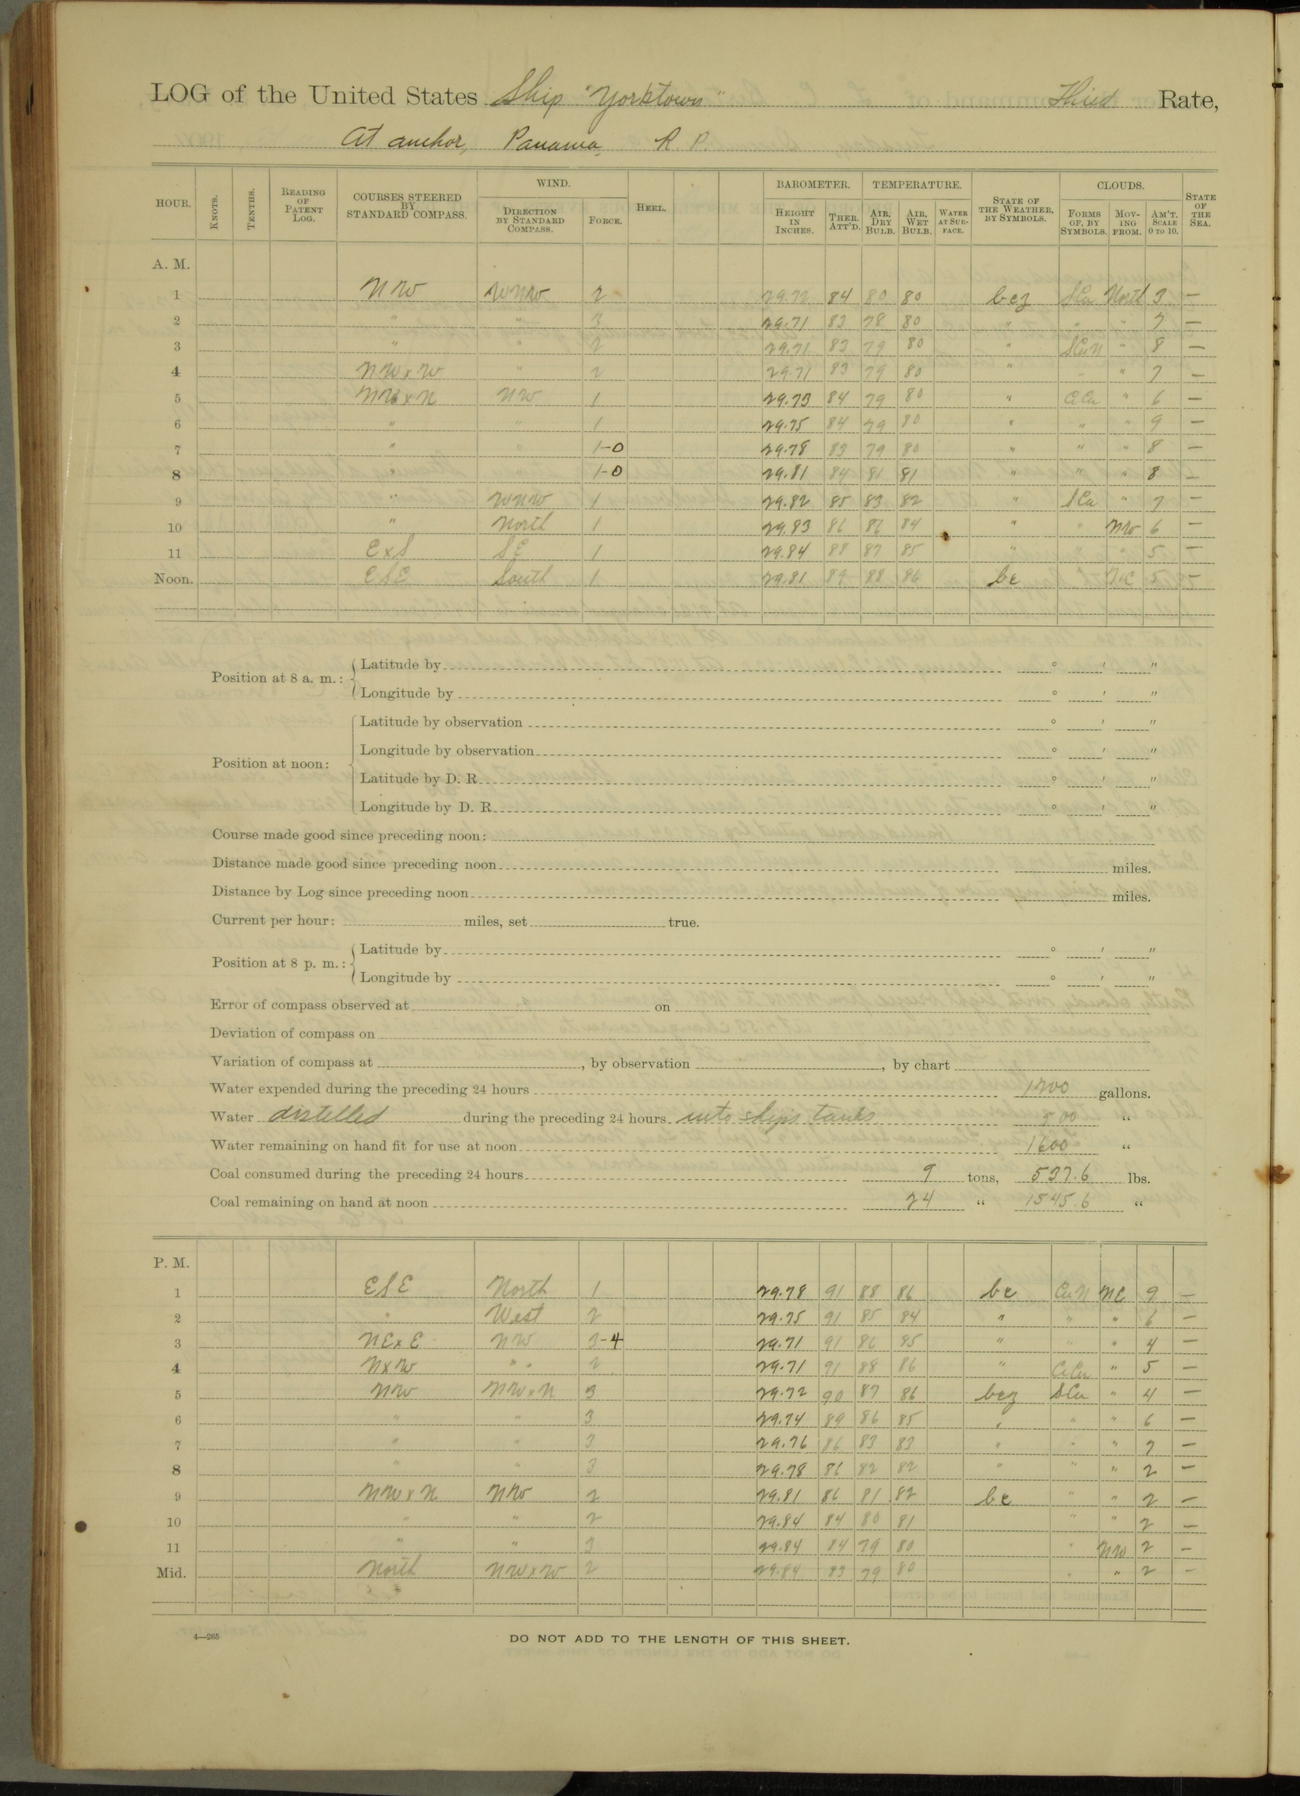 LOG of the United States Ship "Yorktown" Third Rate,
At anchor, Panama, R. P.
HOUR. KNOTS. TENTHS. READING OF PATENT LOG. COURSES STEERED BY STANDARD COMPASS. WIND. DIRECTION BY STANDARD COMPASS. FORCE. HEEL. BAROMETER. HEIGHT IN INCHES. THER. ATT'D. TEMPERATURE. AIR, DRY BULB. AIR, WET BULB. WATER AT SURFACE. STATE OF THE WEATHER, BY SYMBOLS. CLOUDS. FORMS OF, BY SYMBOLS. MOVING FROM. AM'T. SCALE 0 TO 10. STATE OF THE SEA.
A. M.
1 NW WNW 2 29.72 84 80 80 bcz SCu North 3 —
2 " " 3 29.71 83 78 80 " " " 7 —
3 " " 2 29.71 83 79 80 " SCuN " 8 —
4 NWxW " 2 29.71 83 79 80 " " " 7 —
5 NWxN NW 1 29.73 84 79 80 " CiCu " 6 —
6 " " 1 29.75 84 79 80 " " " 9 —
7 " " 1-0 29.78 83 79 80 " " " 8 —
8 " " 1-0 29.81 84 81 81 " " " 8 —
9 " WNW 1 29.82 85 83 82 " SCu " 7 —
10 " North 1 29.83 86 86 84 " " NW 6 —
11 ExS SE 1 29.84 88 87 85 " " 5 —
Noon. ESE South 1 29.81 89 88 86 bc NE 5 —
Position at 8 a. m.: Latitude by ° ' "
Longitude by ° ' "
Position at noon: Latitude by observation ° ' "
Longitude by observation ° ' "
Latitude by D. R. ° ' "
Longitude by D. R. ° ' "
Course made good since preceding noon:
Distance made good since preceding noon miles.
Distance by Log since preceding noon miles.
Current per hour: miles, set true.
Position at 8 p. m.: Latitude by ° ' "
Longitude by ° ' "
Error of compass observed at on
Deviation of compass on
Variation of compass at , by observation , by chart
Water expended during the preceding 24 hours 1200 gallons.
Water distilled during the preceding 24 hours into ships tanks 800 "
Water remaining on hand fit for use at noon 1600 "
Coal consumed during the preceding 24 hours 9 tons, 537.6 lbs.
Coal remaining on hand at noon 24 " 1545.6 "
P. M.
1 ESE North 1 29.78 91 88 86 bc CuN NE 9 —
2 " West 2 29.75 91 85 84 " " " 6 —
3 NExE NW 3-4 29.71 91 86 85 " " " 4 —
4 NxW " " 2 29.71 91 88 86 " CiCu " 5 —
5 NW NWxN 3 29.72 90 87 86 bcz SCu " 4 —
6 " " 3 29.74 89 86 85 " " " 6 —
7 " " 3 29.76 86 83 83 " " " 7 —
8 " " 3 29.78 86 82 82 " " " 2 —
9 NWxN NW 2 29.81 86 81 82 bc " " 2 —
10 " " 2 29.84 84 80 81 " " 2 —
11 " " 3 29.84 84 79 80 " NW 2 —
Mid. North NWxW 2 29.84 83 79 80 " " 2 —
4—265
DO NOT ADD TO THE LENGTH OF THIS SHEET.